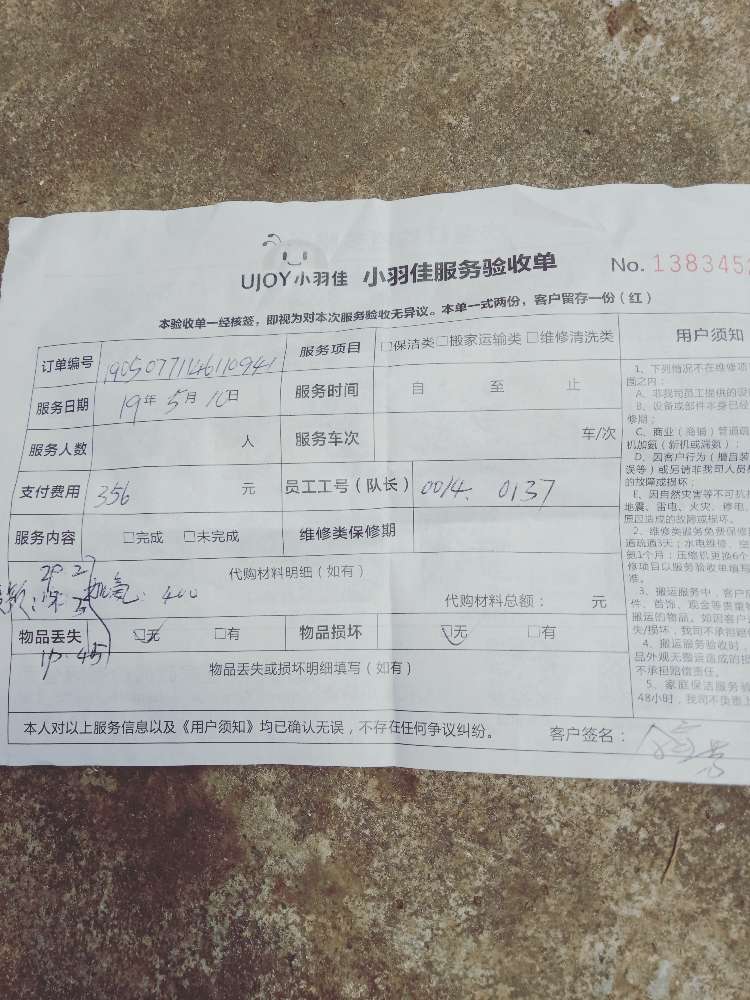 UJOY小羽佳 小羽佳服务验收单 No. 1383452
本验收单一经核签，即视为对本次服务验收无异议。本单一式两份，客户留存一份（红）
订单编号 19050771146110941 服务项目 □保洁类□搬家运输类□维修清洗类
服务日期 19年5月10日 服务时间 自 至 止
服务人数 人 服务车次 车/次
支付费用 356 元 员工工号（队长） 0014. 0137
服务内容 □完成 □未完成 维修类保修期
代购材料明细（如有）
加氟. 400
代购材料总额： 元
物品丢失 ☑无 □有 物品损坏 ☑无 □有
1p. 45
物品丢失或损坏明细填写（如有）
本人对以上服务信息以及《用户须知》均已确认无误，不存在任何争议纠纷。 客户签名：
用户须知
1、下列情况不在维修项
围之内：
A、非我司员工提供的设
B、设备或部件本身已经
修期；
C、商业（商铺）管道疏
机加氨（新机或漏氨）；
D、因客户行为（擅自装
误等）或另请非我司人员
的故障或损坏；
E、因自然灾害等不可抗
地震、雷电、火灾、停电、
原因造成的故障或损坏。
2、维修类服务免费保修
道疏通3天；水电维修、空
氨1个月；压缩机更换6个
修项目以服务验收单填写
准。
3、搬运服务中，客户
件、首饰、现金等贵重
搬运的物品。如因客户
失/损坏，我司不承担赔
4、搬运服务验收时，
品外观无搬运造成的
不承担赔偿责任。
5、家庭保洁服务
48小时，我司不负责